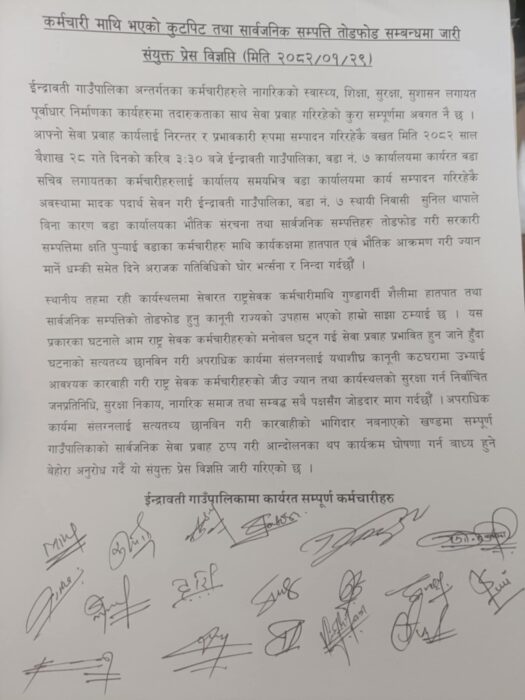 कर्मचारी माथि भएको कुटपिट तथा सार्वजनिक सम्पत्ति तोडफोड सम्बन्धमा जारी
संयुक्त प्रेस विज्ञप्ति (मिति २०८२/०१/२९)
ईन्द्रावती गाउँपालिका अन्तर्गतका कर्मचारीहरुले नागरिकको स्वास्थ्य, शिक्षा, सुरक्षा, सुशासन लगायत
पूर्वाधार निर्माणका कार्यहरुमा तदारुकताका साथ सेवा प्रवाह गरिरहेको कुरा सम्पूर्णमा अवगत नै छ ।
आफ्नो सेवा प्रवाह कार्यलाई निरन्तर र प्रभावकारी रुपमा सम्पादन गरिरहेकै वखत मिति २०८२ साल
वैशाख २८ गते दिनको करिव ३:३० बजे ईन्द्रावती गाउँपालिका, वडा नं. ७ कार्यालयमा कार्यरत वडा
सचिव लगायतका कर्मचारीहरुलाई कार्यालय समयभित्र वडा कार्यालयमा कार्य सम्पादन गरिरहेकै
अवस्थामा मादक पदार्थ सेवन गरी ईन्द्रावती गाउँपालिका, वडा नं. ७ स्थायी निवासी सुनिल थापाले
बिना कारण वडा कार्यालयका भौतिक संरचना तथा सार्वजनिक सम्पत्तिहरु तोडफोड गरी सरकारी
सम्पत्तिमा क्षति पुऱ्याई वडाका कर्मचारीहरु माथि कार्यकक्षमा हातपात एवं भौतिक आक्रमण गरी ज्यान
मार्ने धम्की समेत दिने अराजक गतिविधिको घोर भर्त्सना र निन्दा गर्दछौँ ।
स्थानीय तहमा रही कार्यस्थलमा सेवारत राष्ट्रसेवक कर्मचारीमाथि गुण्डागर्दी शैलीमा हातपात तथा
सार्वजनिक सम्पत्तिको तोडफोड हुनु कानूनी राज्यको उपहास भएको हाम्रो साझा ठम्याई छ । यस
प्रकारका घटनाले आम राष्ट्र सेवक कर्मचारीहरुको मनोबल घट्न गई सेवा प्रवाह प्रभावित हुन जाने हुँदा
घटनाको सत्यतथ्य छानविन गरी अपराधिक कार्यमा संलग्नलाई यथाशीघ्र कानूनी कठघरामा उभ्याई
आवश्यक कारबाही गरी राष्ट्र सेवक कर्मचारीहरुको जीउ ज्यान तथा कार्यस्थलको सुरक्षा गर्न निर्वाचित
जनप्रतिनिधि, सुरक्षा निकाय, नागरिक समाज तथा सम्बद्ध सबै पक्षसँग जोडदार माग गर्दछौँ । अपराधिक
कार्यमा संलग्नलाई सत्यतथ्य छानविन गरी कारबाहीको भागिदार नबनाएको खण्डमा सम्पूर्ण
गाउँपालिकाको सार्वजनिक सेवा प्रवाह ठप्प गरी आन्दोलनका थप कार्यक्रम घोषणा गर्न बाध्य हुने
बेहोरा अनुरोध गर्दै यो संयुक्त प्रेस विज्ञप्ति जारी गरिएको छ ।
ईन्द्रावती गाउँपालिकामा कार्यरत सम्पूर्ण कर्मचारीहरु